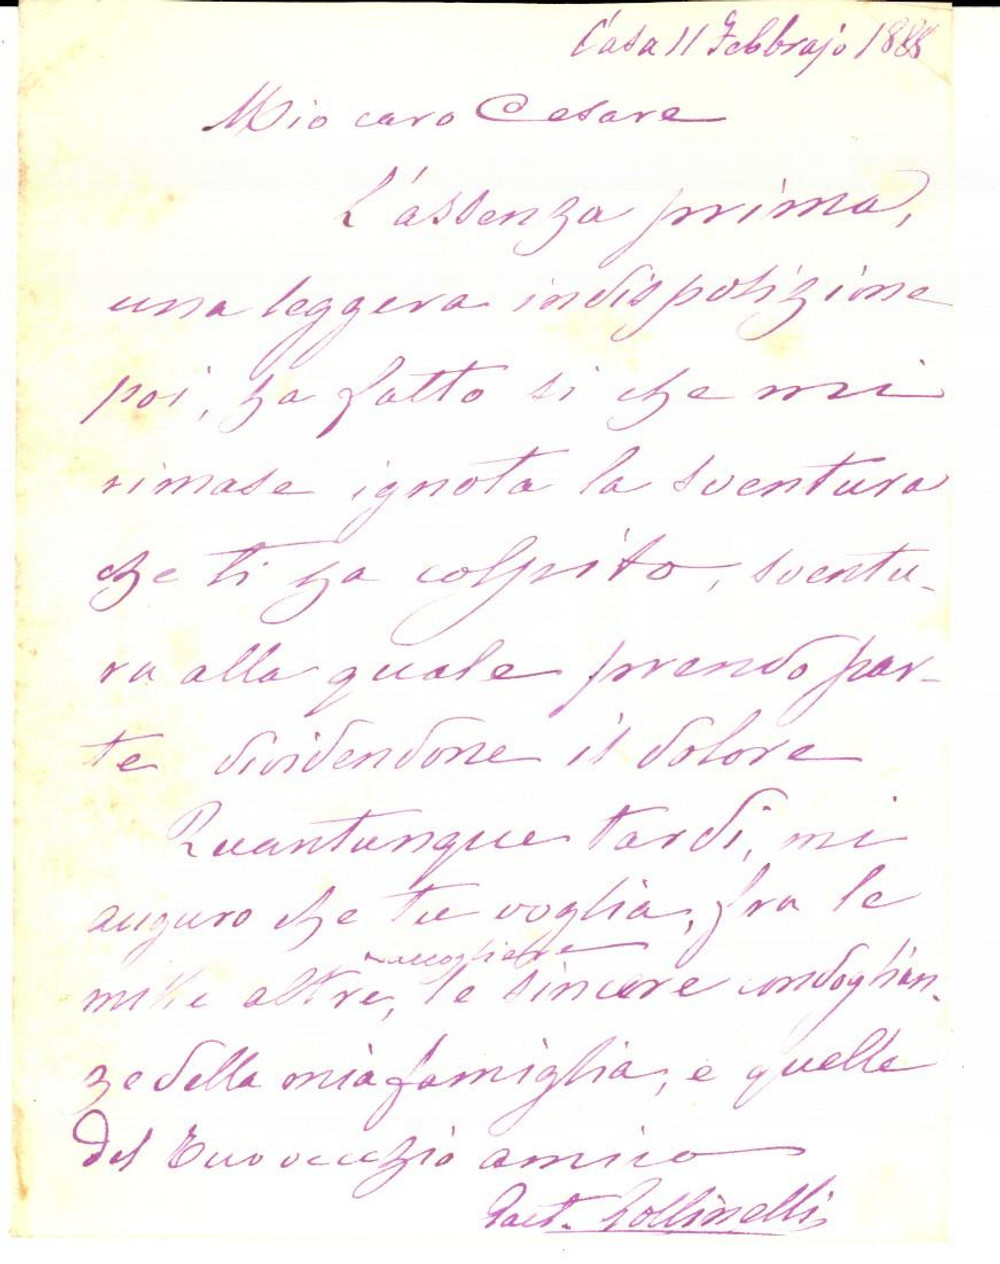 Casa 11 Febbrajo 1888
Mio caro Cesare
L'assenza prima,
una leggera indisposizione
poi, ha fatto si che mi
rimase ignota la sventura
che ti ha colpito, sventu-
ra alla quale prendo par-
te dividendone il dolore
Quantunque tardi, mi
auguro che tu voglia, fra le
raccogliere
mille altre, le sincere condoglian-
ze della mia famiglia, e quelle
del tuo vecchio amico
Gaet. Gollinelli